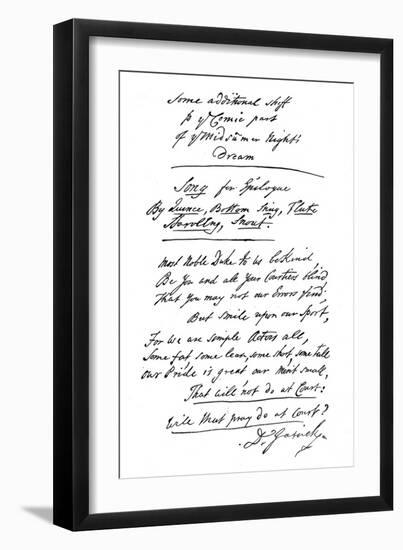 Some additional stuff
to yᵉ Comic part
of yᵉ Midsum̄er Night's
Dream
Song for Epilogue
By Quince, Bottom Snug, Flute
Starveling, Snout.
Most Noble Duke to us be kind,
Be You and all Your Courtiers blind,
That You may not our Errors find,
But smile upon our Sport,
For we are simple Actors all,
Some fat some lean, some short, some tall
Our Pride is great our Merit small,
That will not do at Court:
Will that pray do at Court?
D. Garrick